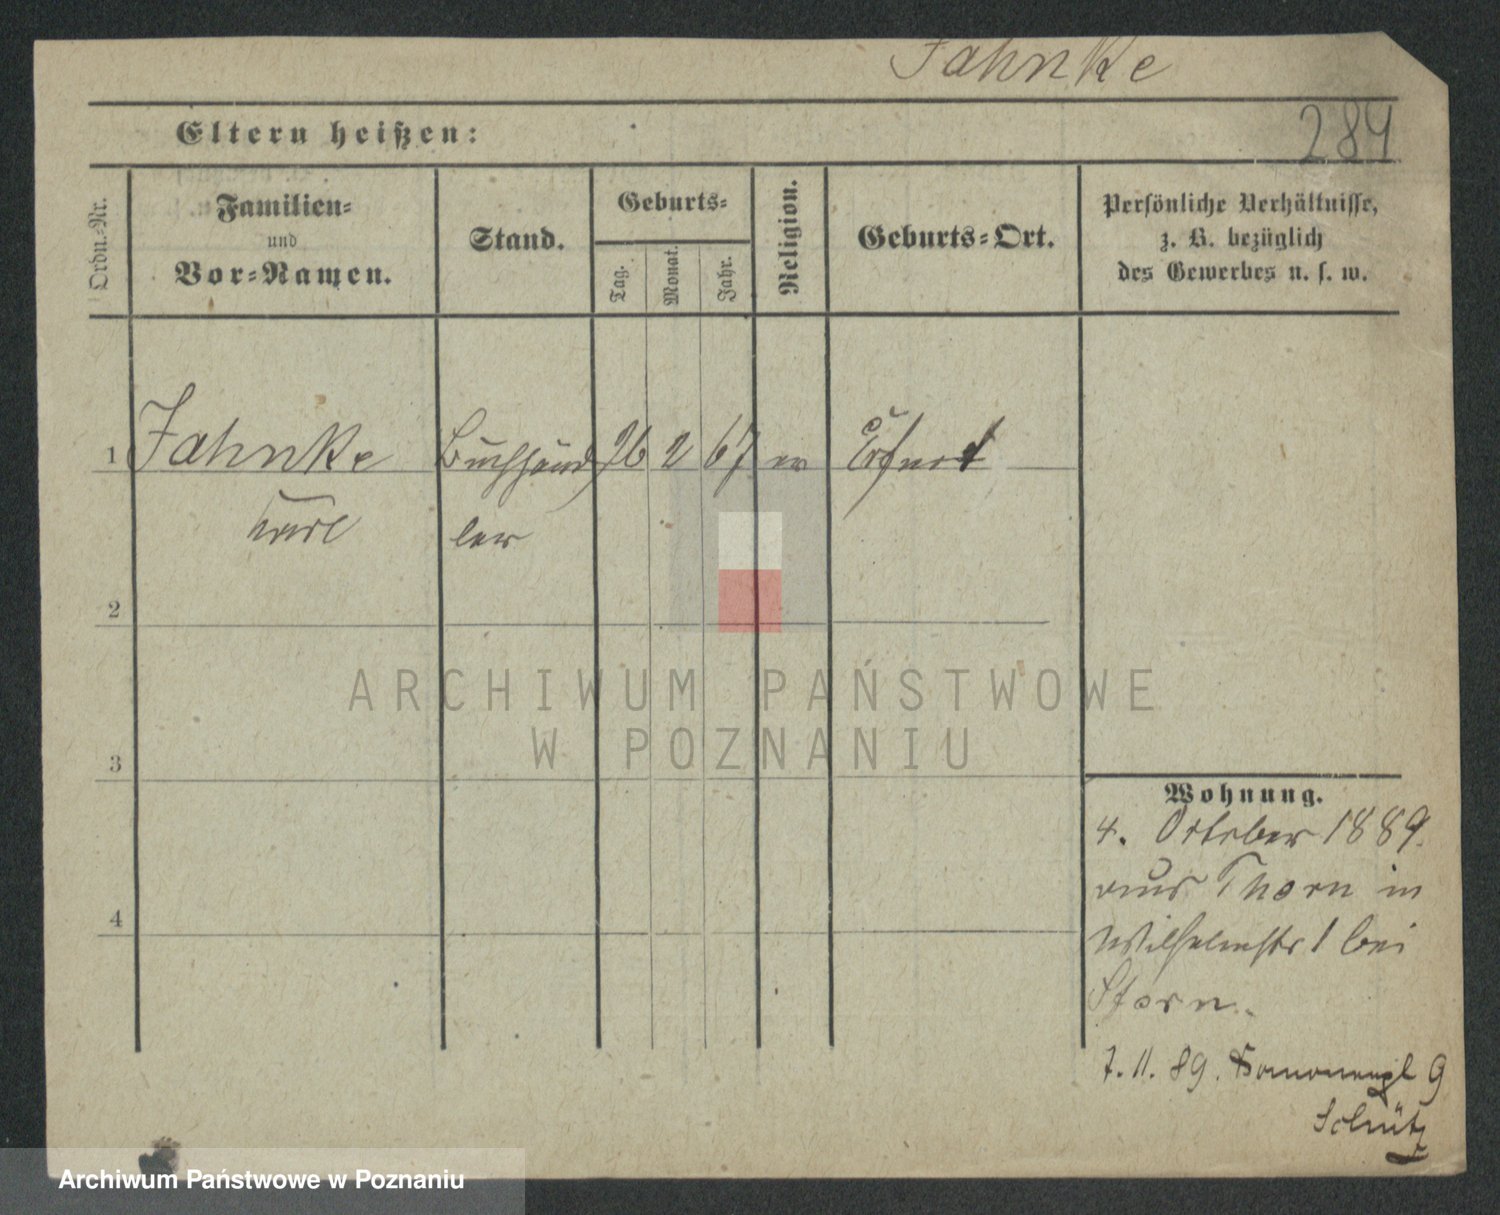 Jahnke
284
Eltern heißen:
Ordn.-Nr.
Familien-
und
Vor-Namen.
Stand.
Geburts-
Tag.
Monat.
Jahr.
Religion.
Geburts-Ort.
Persönliche Verhältnisse,
z. B. bezüglich
des Gewerbes u. s. w.
1 Jahnke Buchhänd 26 2 67 ev Erfurt
Karl ler
2
3
4
Wohnung.
4. October 1889.
aus Thorn in
Wilhelmstr 1 bei
Stern.
7. 11. 89. 9
Schütz
ARCHIWUM PAŃSTWOWE
W POZNANIU
Archiwum Państwowe w Poznaniu